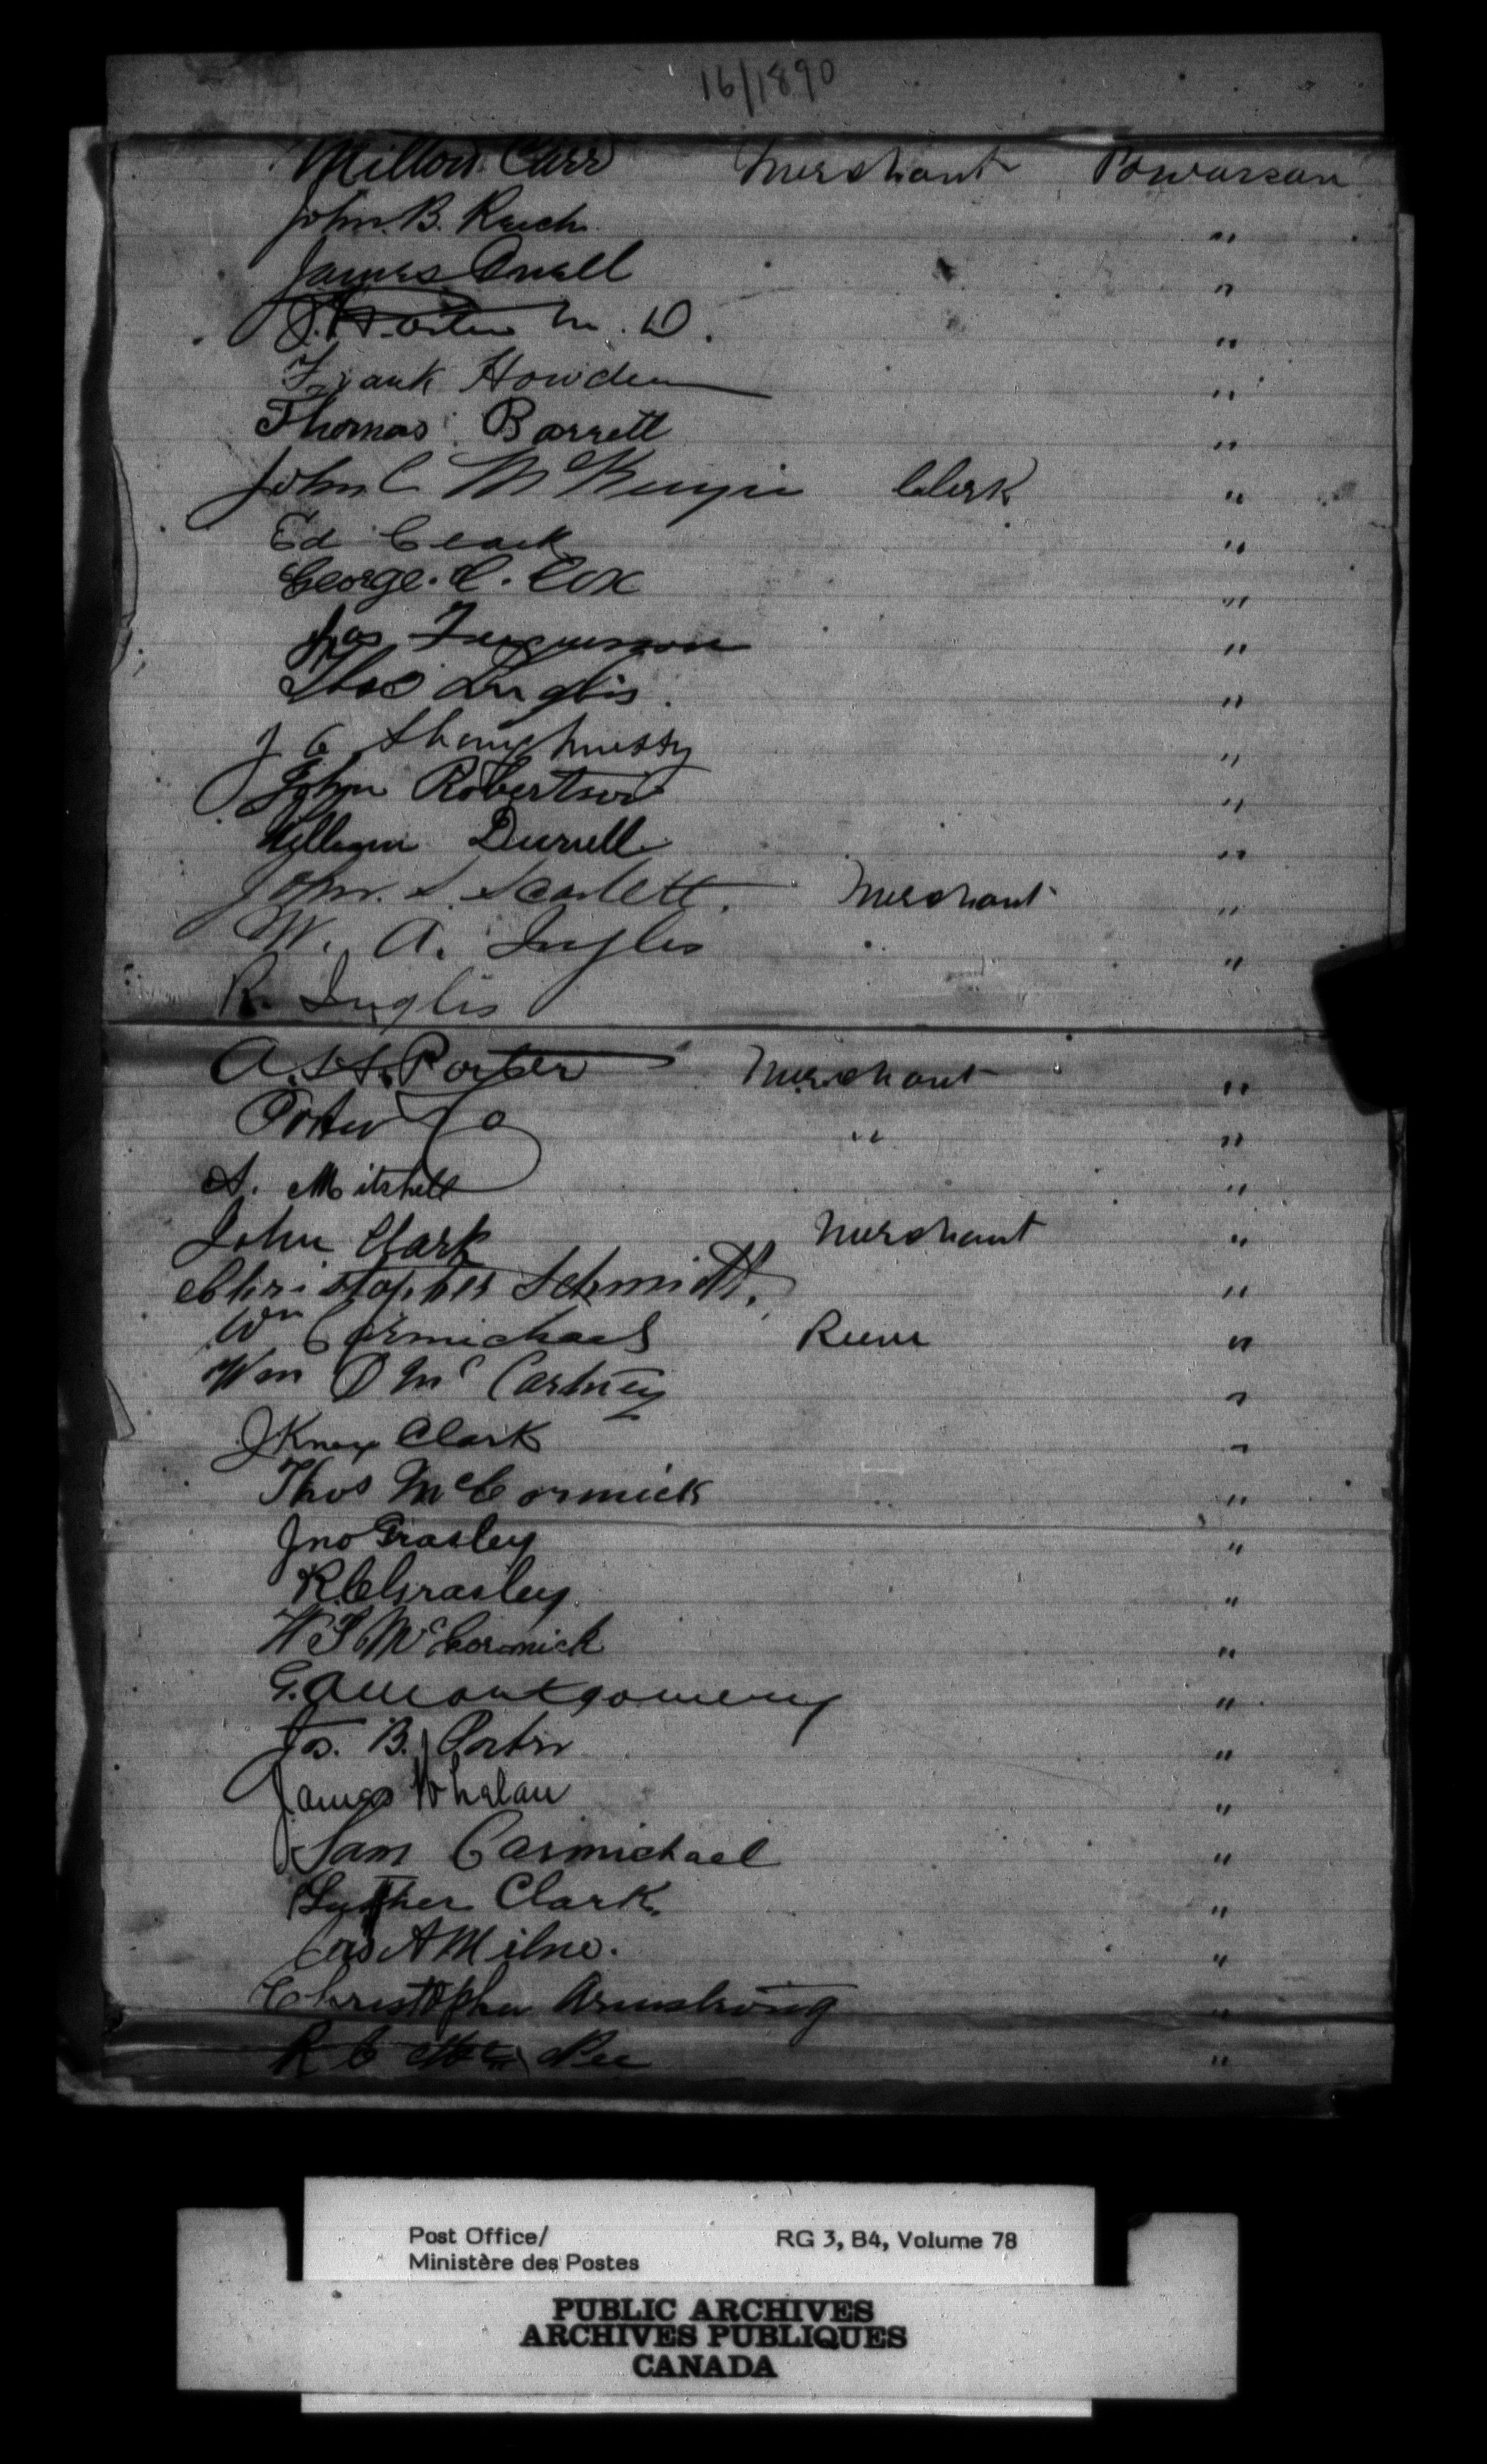 16/1890
Milton Carr Merchant Powassan
John. B. "
James "
M.D. "
Frank Howden "
Thomas Barrett "
John C Clerk "
Ed Clark "
George. C. Cox "
Jas Ferguson "
Thos Inglis. "
J C Shaughnessy "
John Robertson "
William Durrell "
John. S. Scarlett. Merchant "
W. A. Inglis "
R. Inglis
A. H. Porter Merchant "
Porter " "
A. Mitchell "
John Clark Merchant "
Christopher Schmidt. "
Wm Carmichael Reeve "
Wm D McCartney "
J Knox Clark "
Thos McCormick "
Jno Grasley "
R. C Grasley. "
W J McCormick "
G. A Montgomery "
Jos. B. Porter "
James Whalan "
Sam Carmichael "
Luther Clark. "
A Milne. "
Christopher Armstrong "
R C "
Post Office/ RG 3, B4, Volume 78
Ministère des Postes
PUBLIC ARCHIVES
ARCHIVES PUBLIQUES
CANADA